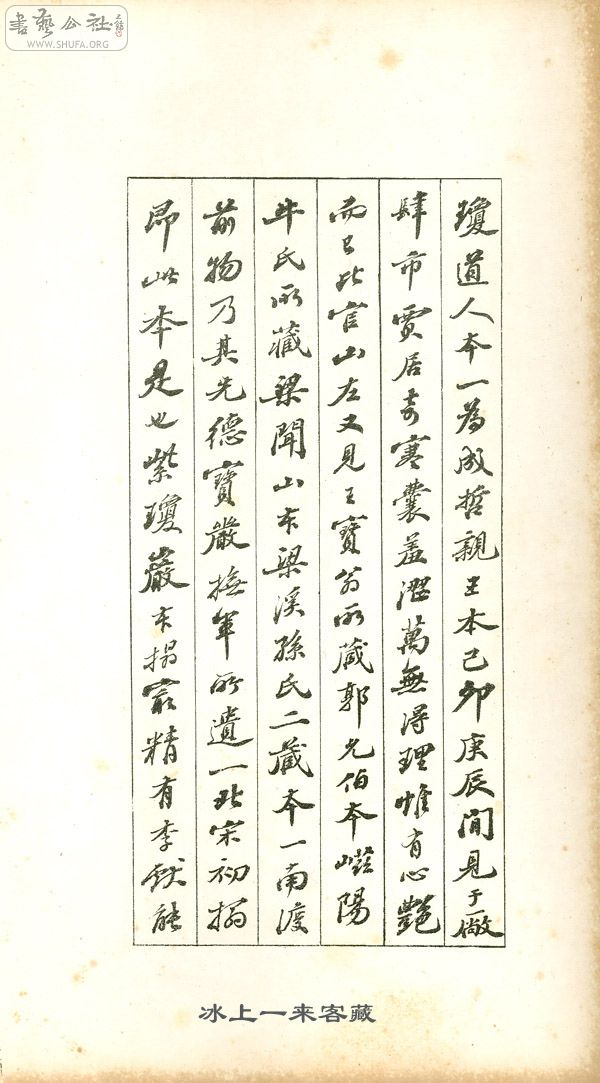 書藝公社
WWW.SHUFA.ORG
瓊道人本一為成哲親王本己卯庚辰間見于廠
肆市賈居奇寒囊羞澀萬無得理惟有心艷
而已比官山左又見王寶翁所藏郭允伯本嶧陽
牛氏所藏梁聞山本梁溪孫氏二藏本一南渡
前物乃其先德寶嚴撫軍所遺一北宋初搨
即此本是也紫瓊巖本搨最精有李獻能
冰上一来客藏